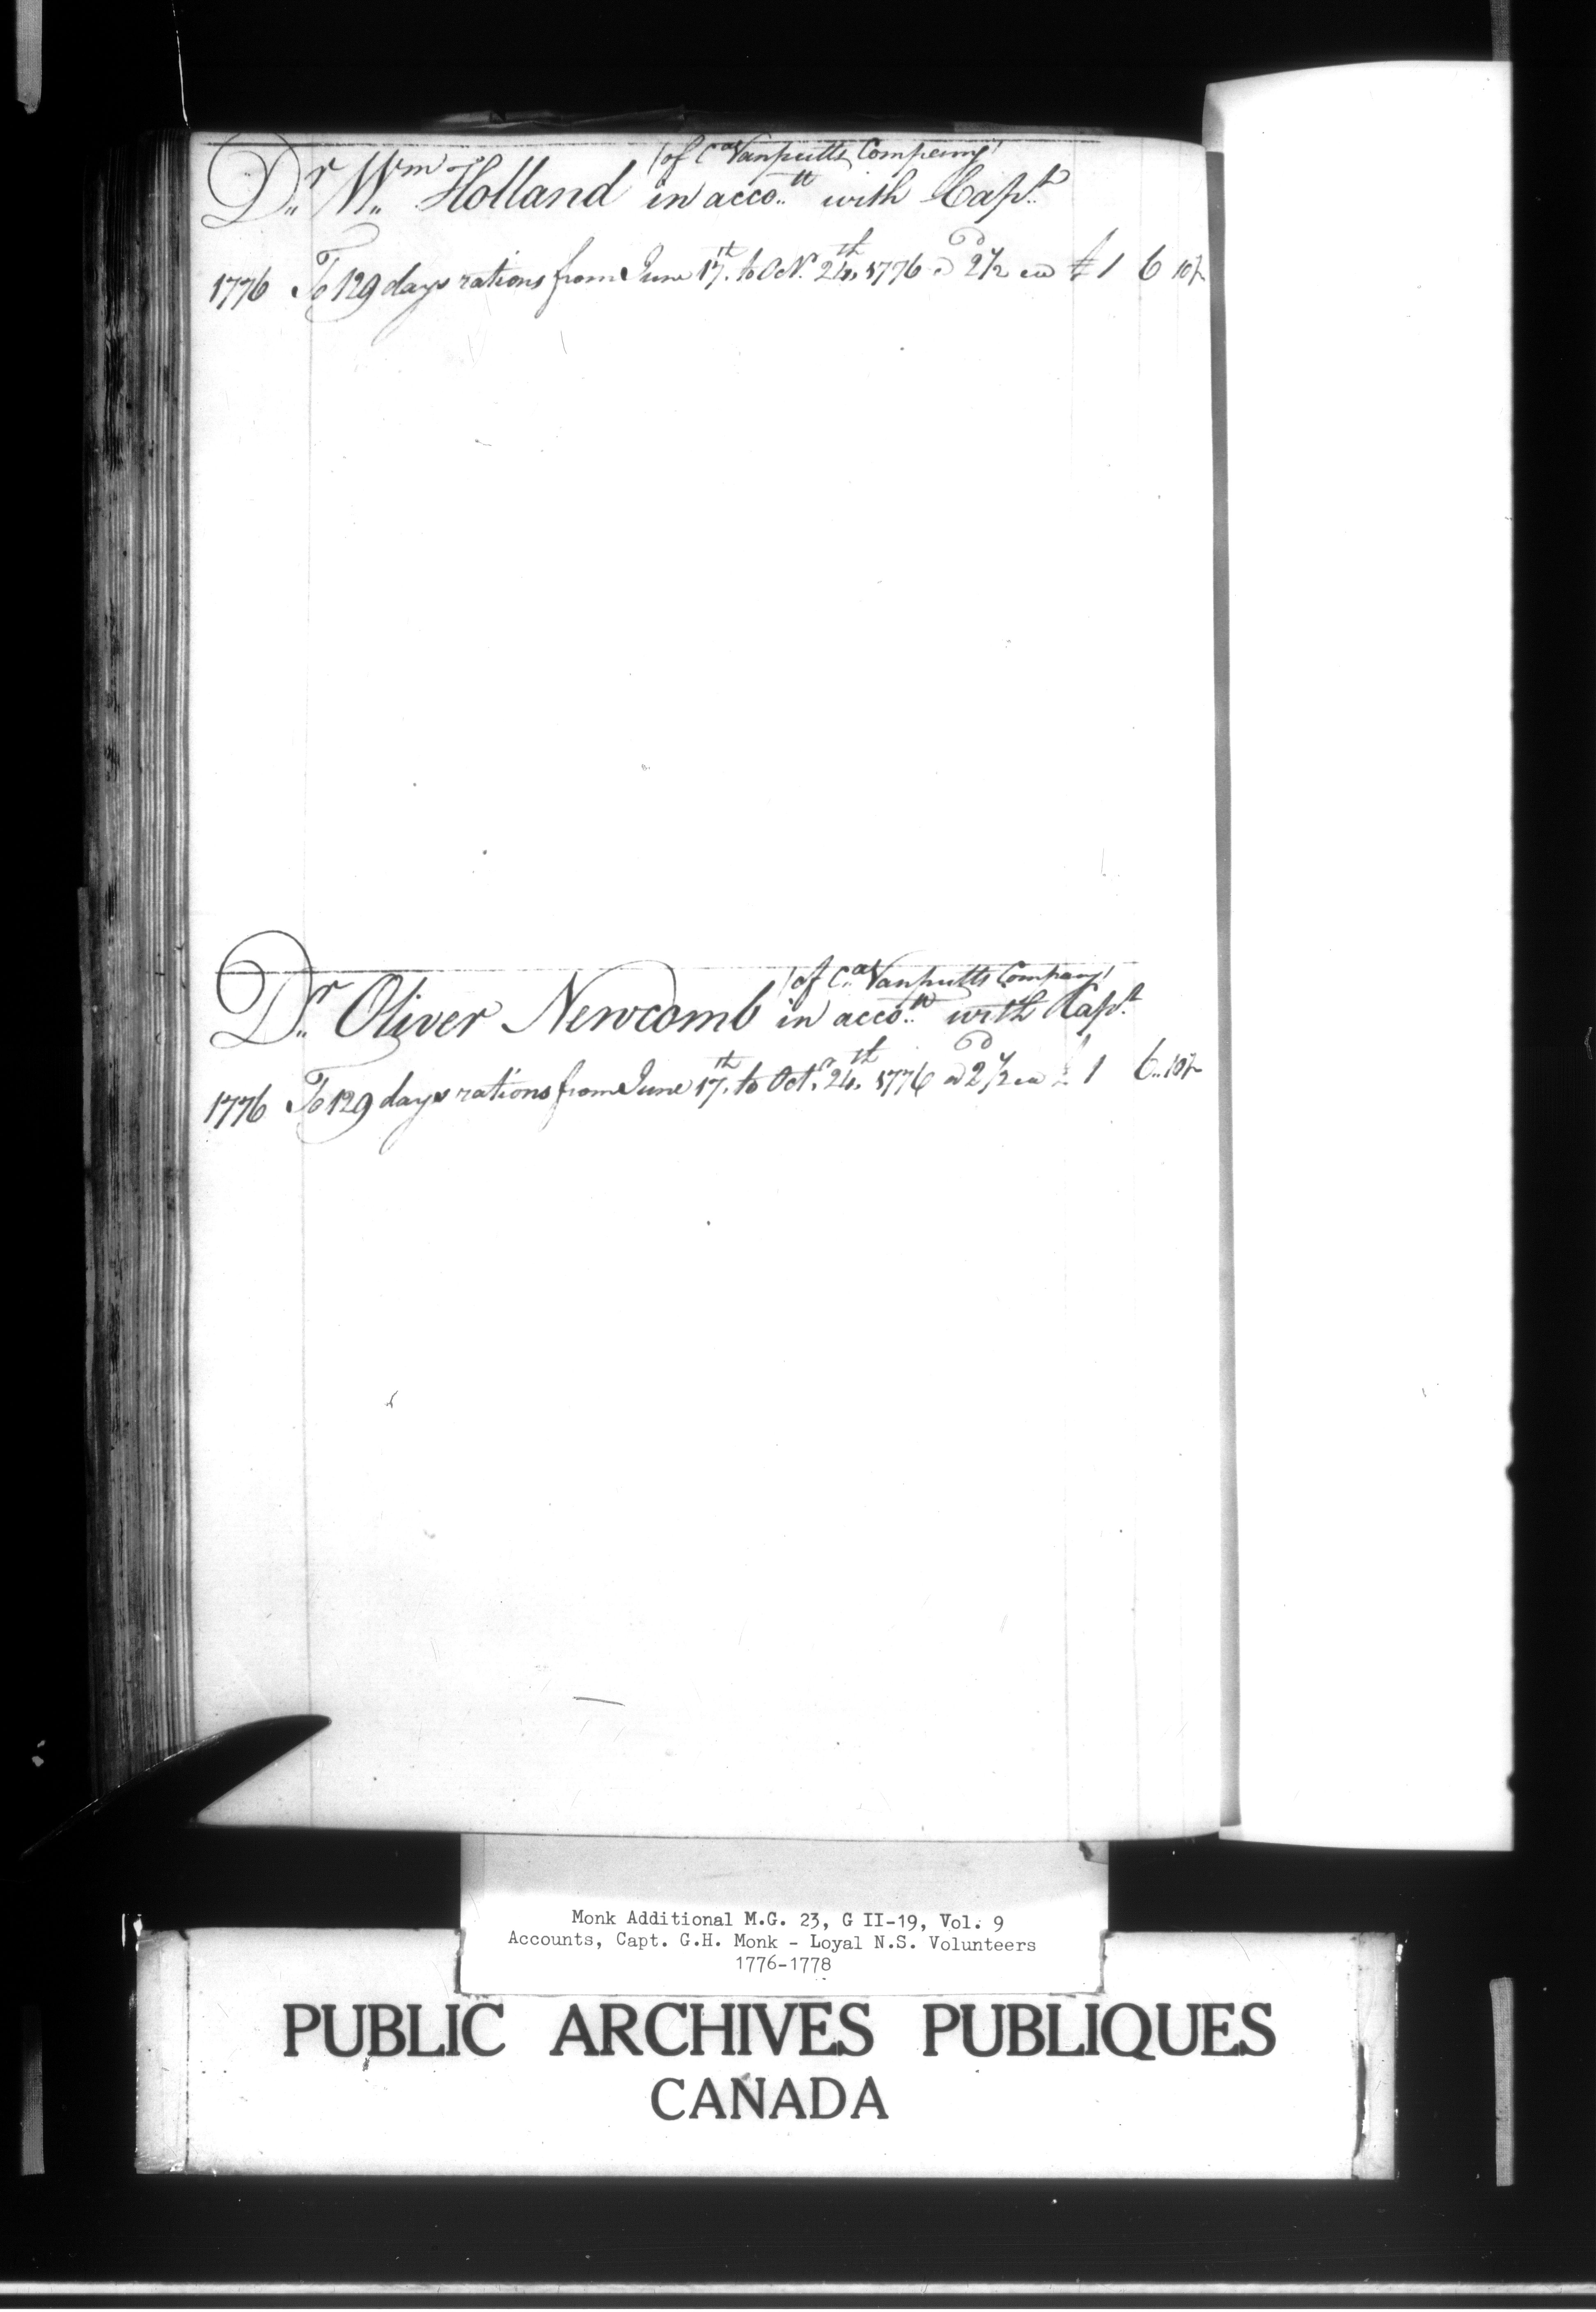 (of Ca Vanputts Company)
Dr Wm Holland in accott with Capt
1776 To 129 days rations from June 17th to Octr 24th 1776 @ 2d½ ea £ 1 6 10½
(of Ca Vanputts Company)
Dr Oliver Newcomb in accott with Capt
1776 To 129 days rations from June 17th to Octr 24th 1776 @ 2d½ ea £ 1 6..10½
Monk Additional M.G. 23, G II-19, Vol. 9
Accounts, Capt. G.H. Monk - Loyal N.S. Volunteers
1776-1778
PUBLIC ARCHIVES PUBLIQUES
CANADA